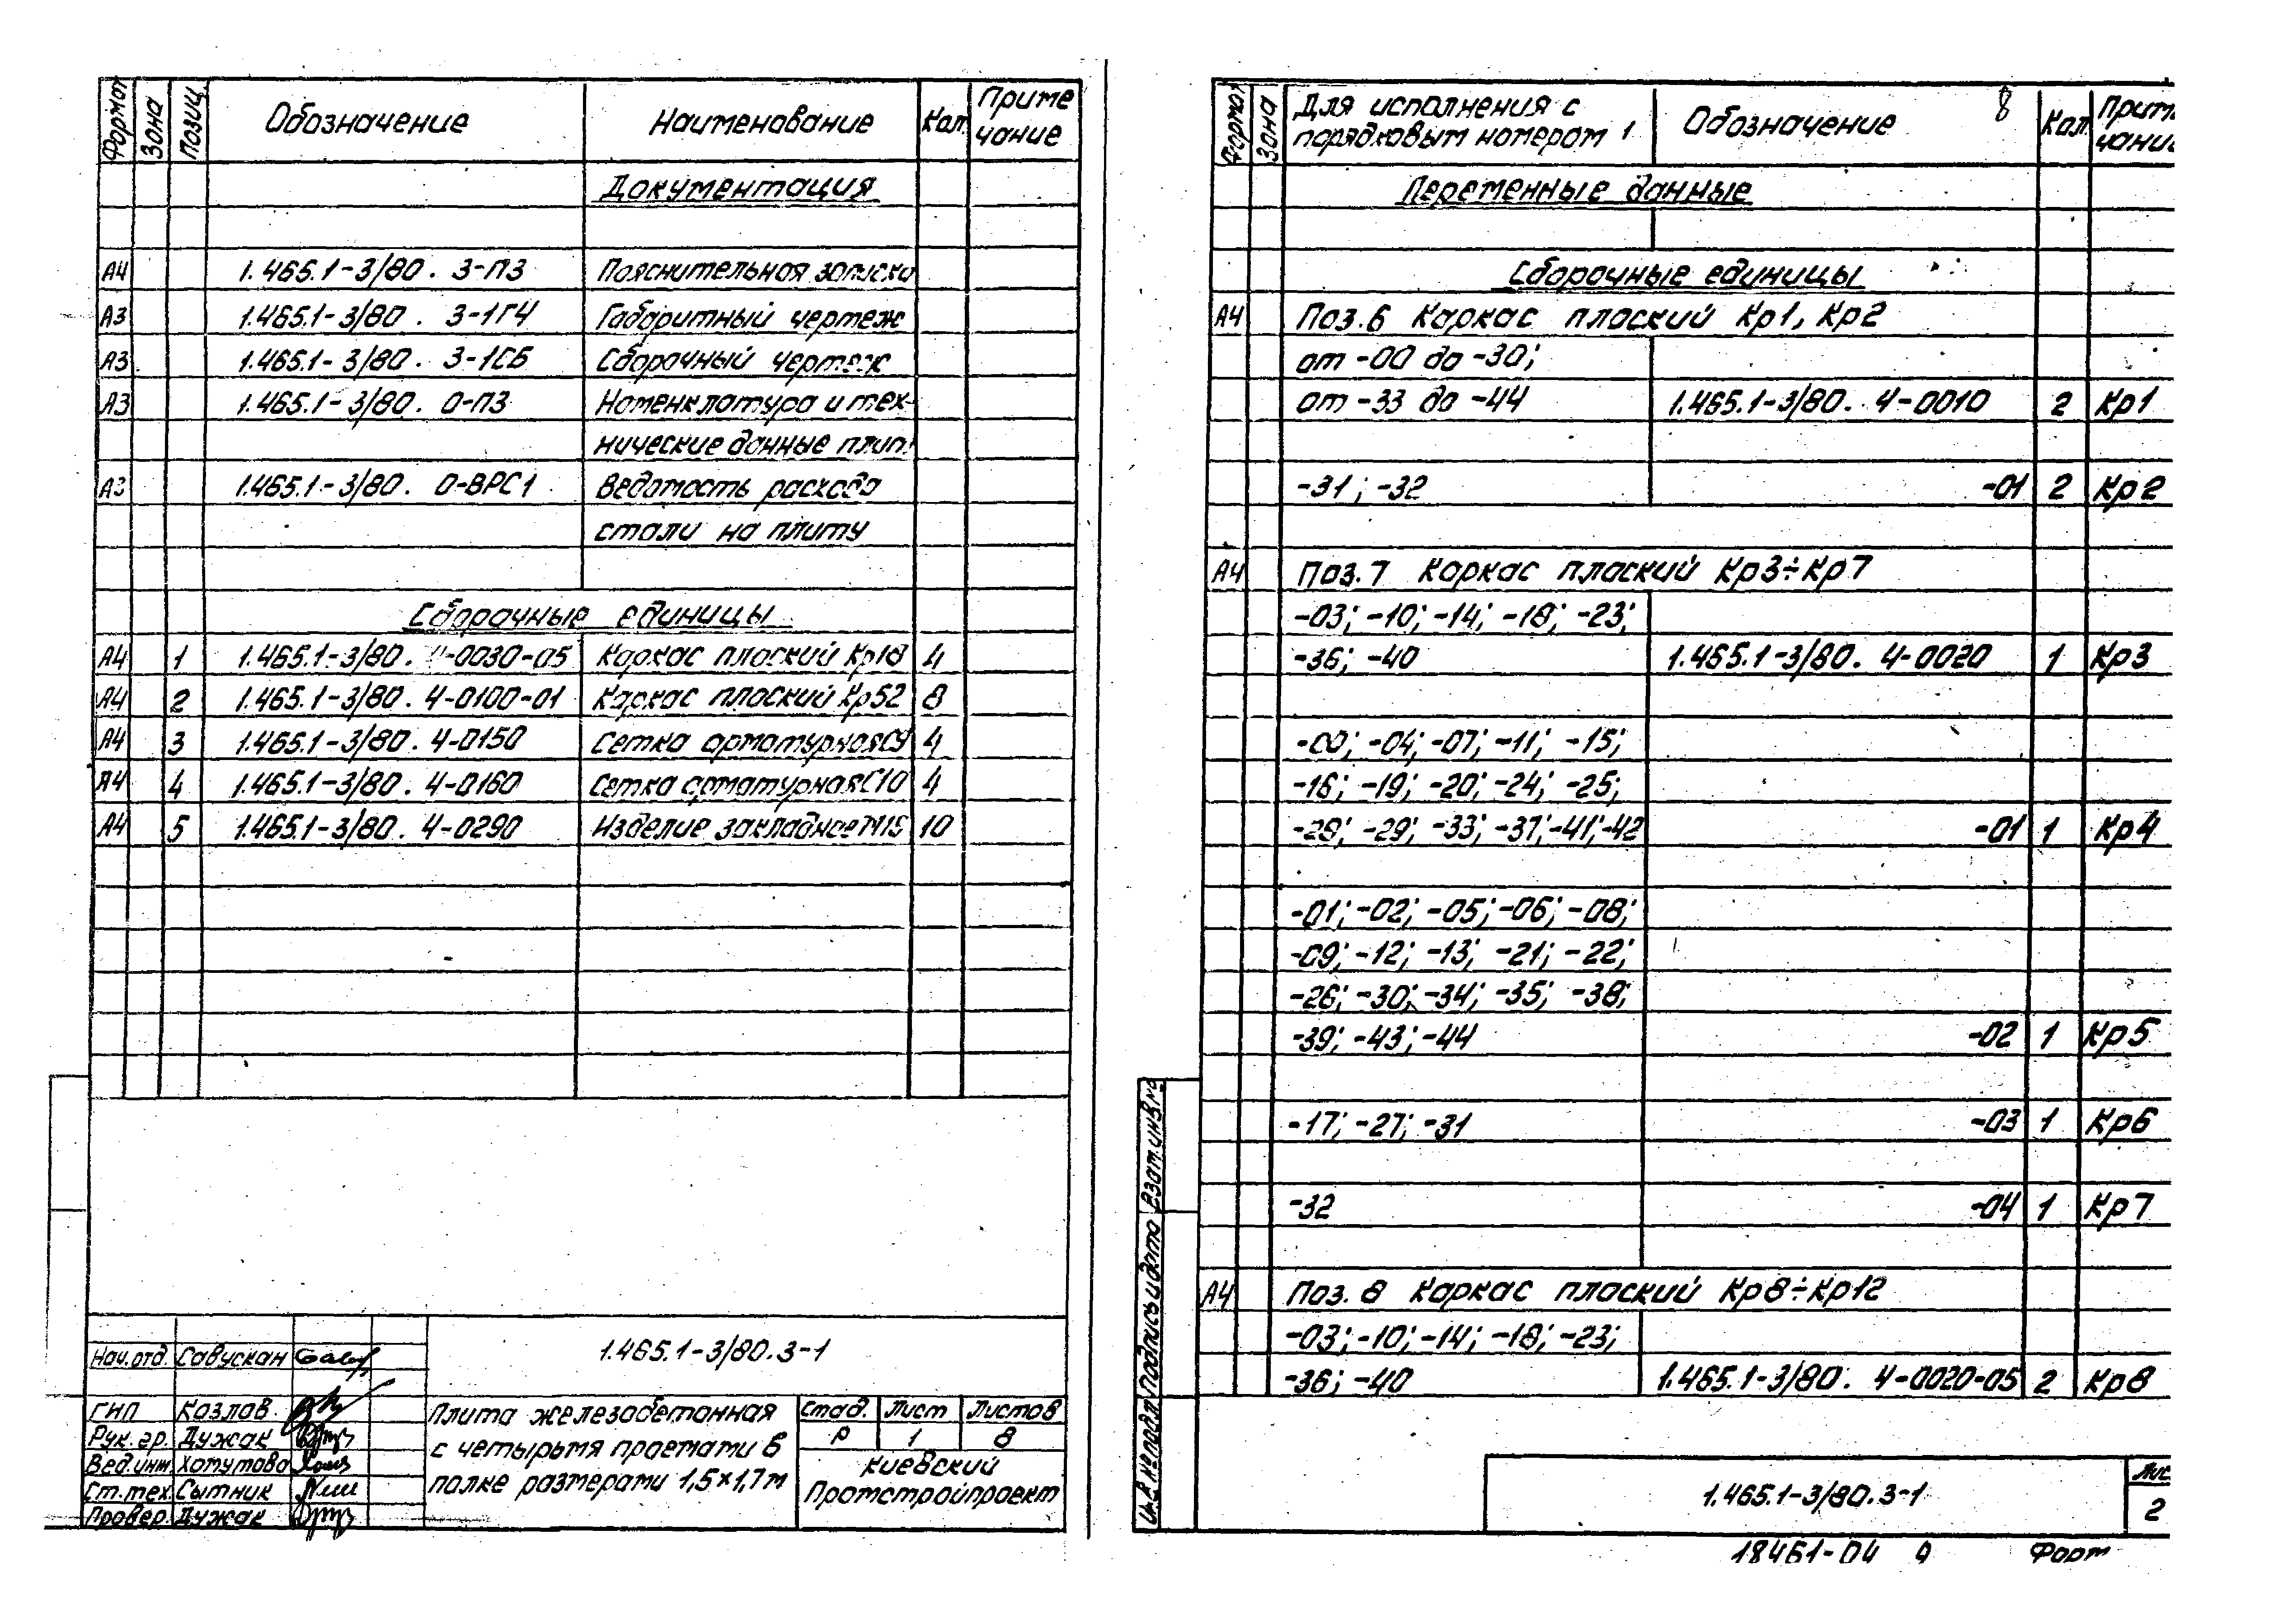 Формат Зона Позиц. Обозначение Наименование Кол. Приме
чание
Документация
А4 1.465.1-3/80. 3-ПЗ Пояснительная записка
А3 1.465.1-3/80. 3-1ГЧ Габаритный чертеж
А3 1.465.1-3/80. 3-1СБ Сборочный чертеж
А3 1.465.1-3/80. 0-ПЗ Номенклатура и тех-
нические данные плит
А3 1.465.1-3/80. 0-ВРС1 Ведомость расхода
стали на плиту
Сборочные единицы
А4 1 1.465.1-3/80. 4-0030-05 Каркас плоский Кр18 4
А4 2 1.465.1-3/80. 4-0100-01 Каркас плоский Кр52 8
А4 3 1.465.1-3/80. 4-0150 Сетка арматурная С9 4
А4 4 1.465.1-3/80. 4-0160 Сетка арматурная С10 4
А4 5 1.465.1-3/80. 4-0290 Изделие закладное М15 10
1.465.1-3/80.3-1
Нач.отд. Савускан
ГИП Козлов
Рук.гр. Дужак
Вед.инж. Хомутова
Ст.тех. Сытник
Провер. Дужак
Плита железобетонная
с четырьмя проемами в
полке размерами 1,5×1,7м
Стад. Лист Листов
Р 1 8
Киевский
Промстройпроект
8
Формат Зона Для исполнения с
порядковым номером 1 Обозначение Кол. Прим
чани
Переменные данные
Сборочные единицы
А4 Поз.6 Каркас плоский Кр1, Кр2
от -00 до -30;
от -33 до -44 1.465.1-3/80. 4-0010 2 Кр1
-31; -32 -01 2 Кр2
А4 Поз.7 Каркас плоский Кр3÷Кр7
-03; -10; -14; -18; -23;
-36; -40 1.465.1-3/80. 4-0020 1 Кр3
-00; -04; -07; -11; -15;
-16; -19; -20; -24; -25;
-28; -29; -33; -37; -41; -42 -01 1 Кр4
-01; -02; -05; -06; -08;
-09; -12; -13; -21; -22;
-26; -30; -34; -35; -38;
-39; -43; -44 -02 1 Кр5
-17; -27; -31 -03 1 Кр6
-32 -04 1 Кр7
А4 Поз.8 Каркас плоский Кр8÷Кр12
-03; -10; -14; -18; -23;
-36; -40 1.465.1-3/80. 4-0020-05 2 Кр8
Инв.№ подл. Подпись и дата Взам.инв.№
1.465.1-3/80.3-1
Лис
2
18461-04 9 Форм